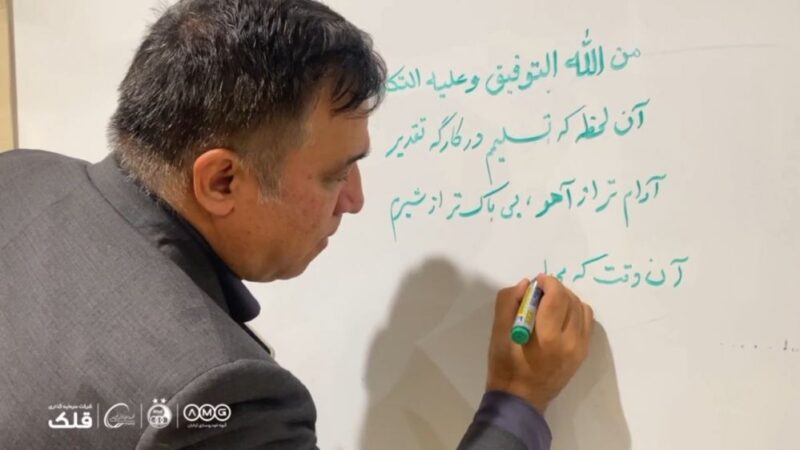 من الله التوفیق و علیه
آن لحظه که تسلیم در کارگه تقدیر
آرام تر از آهو ، بی باک تر از شیرم
آن وقت که
شرکت سرمایه گذاری
قلک
AMG